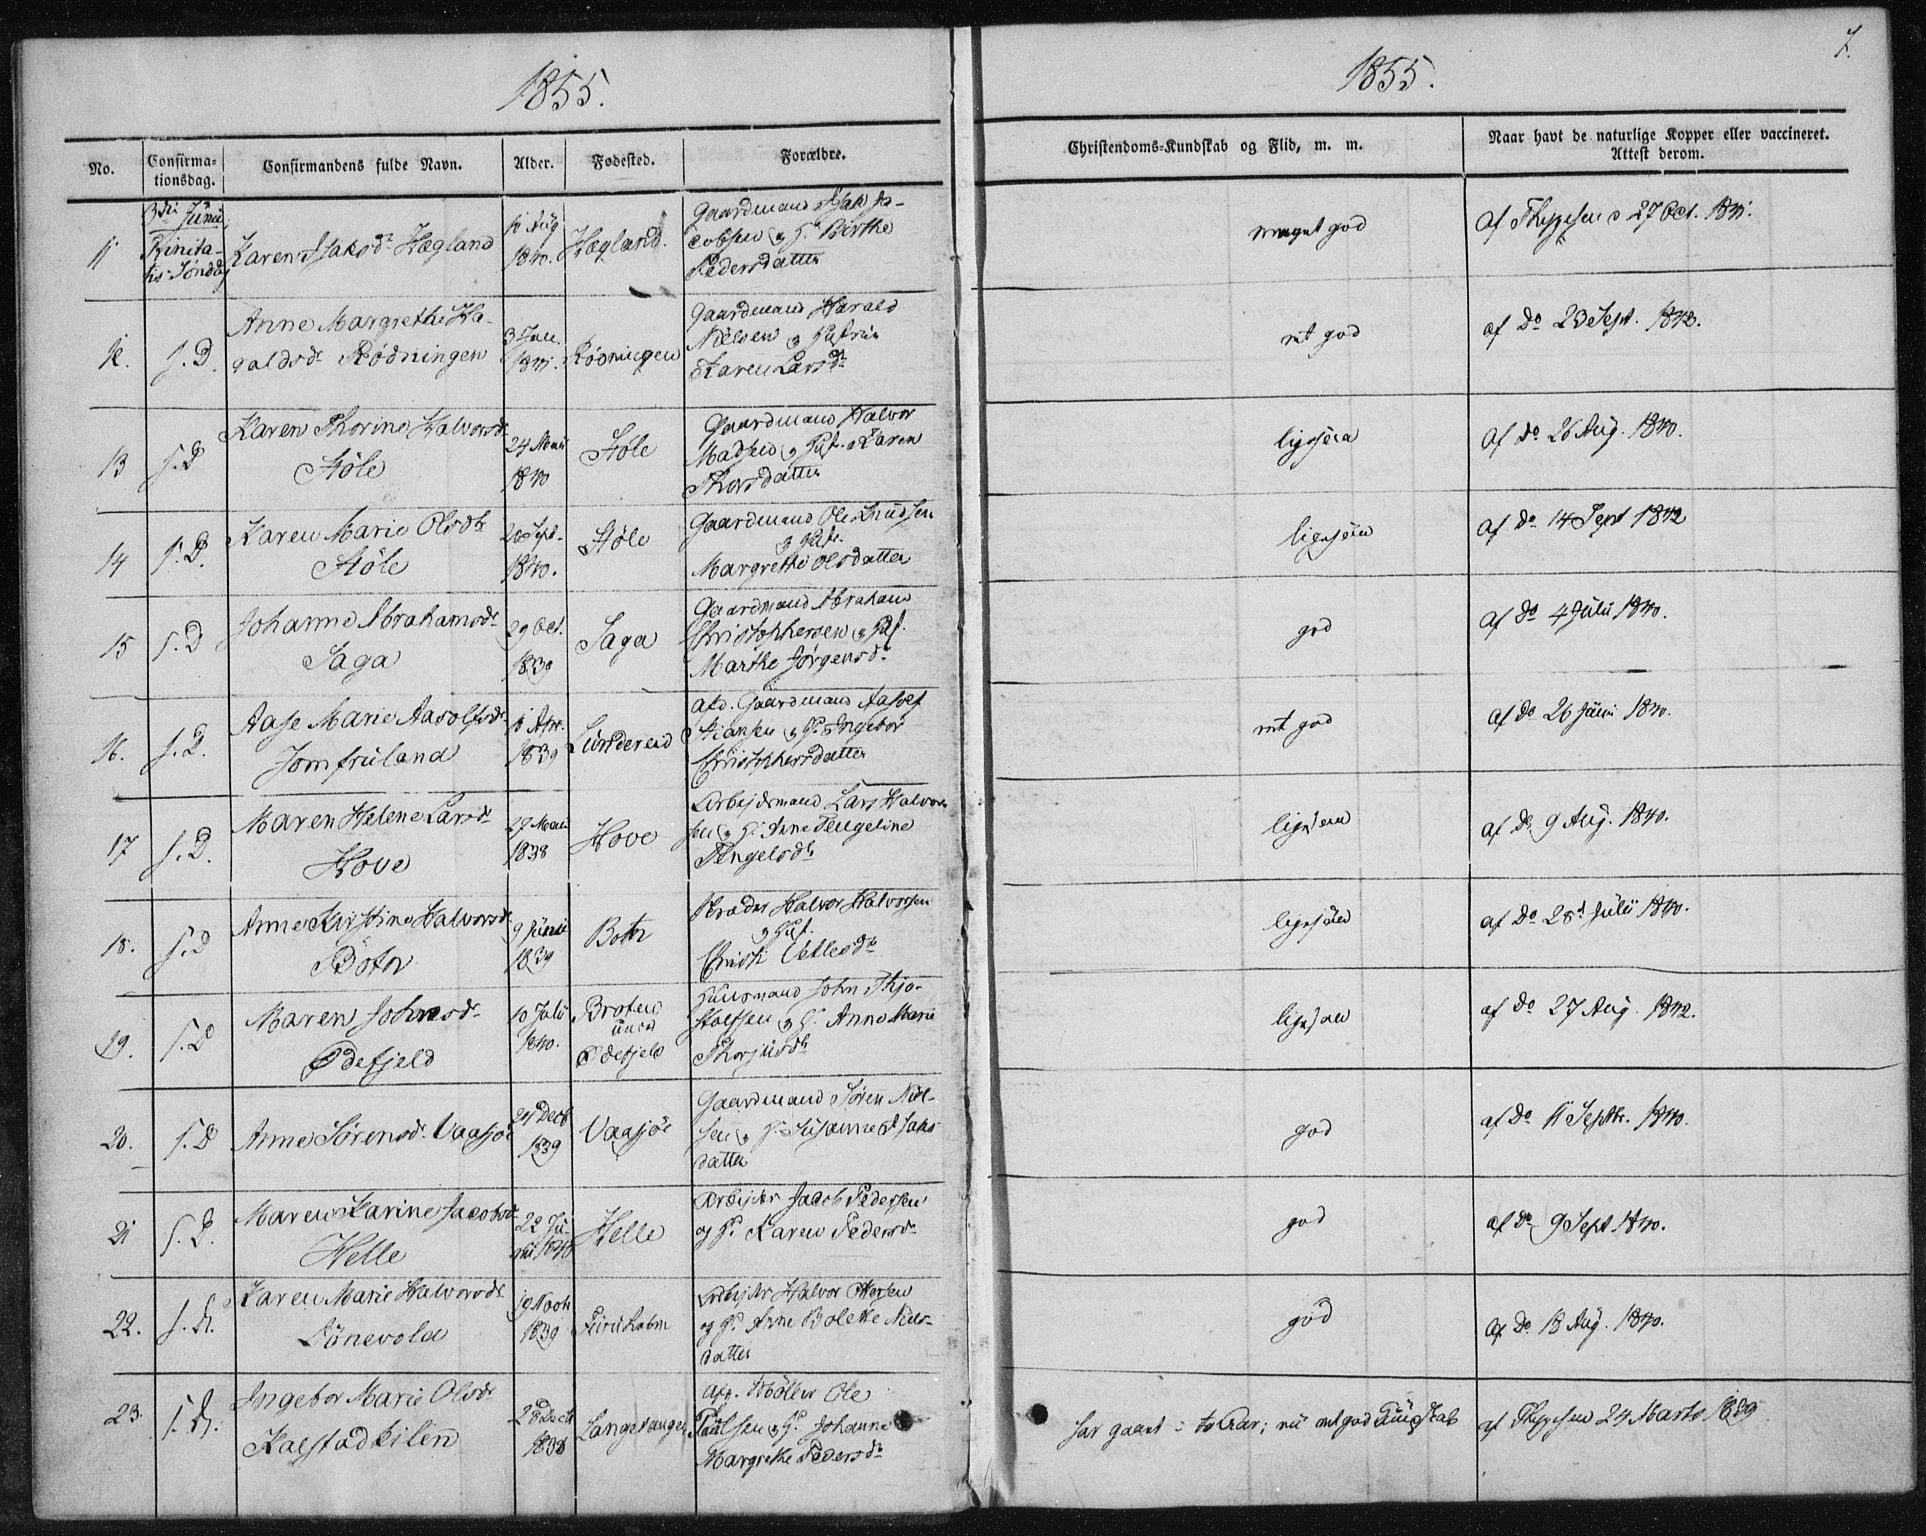 1855.
1855.
7.
No.
Confirma-
tionsdag.
Confirmandens fulde Navn.
Alder.
Fødested.
Forældre.
Christendoms-Kundskab og Flid, m. m.
Naar havt de naturlige Kopper eller vaccineret.
Attest derom.
11
3die Junii
Trinita-
tis Søndag
Karen Isaksdr Hægland
Aug
1840.
Hægland.
Gaardmand Isak Ja-
cobsen og H. Birthe
Pedersdatter
meget god
af Theppesen d 27 Oct.
12.
s. D.
Anne Margrethe Ha-
raldsdr Rødningen
3 Jan.
Rødningen
Gaardmand Harald
Nielsen og Hustru
Karen Larsdr
mt god
af Do 23 Sept.
13
s. D
Karen Thorine Halvorsdr
Støle
24 Marti
1840
Støle
Gaardmand Halvor
Madsen og Hust. Karen
Thorsdatter
ligesaa
af do 26 Aug. 1840.
14
s. D.
Karen Marie Olsdr
Støle
20 Sept.
1840.
Støle
Gaardmand Ole Knudsen
og Hust.
Margrethe Olsdatter
ligesaa
af do 14 Sept 1842
15
s. D
Johanne Abrahamsdr
Saga
29 Oct.
1839
Saga
Gaardmand Abraham
Christophersen og Hust.
Marthe Jørgensdr
god
af do 4 Julii 1840.
16.
s. D.
Aase Marie Aasolfsdr
Jomfruland
Apr.
1839
afd. Gaardmand Aasolf
Stiansen og H. Ingebor
Christophersdatter
mt god
af do 26 Junii 1840.
17
s. D.
Maren Helene Larsdr
Hove
1838
Hove
Arbejdsmand Lars Halvor-
sen og H. Anne Tengeline
Tengelsdr
ligesaa
af do 9 Aug. 1840.
18.
s. D
Anne Kirstine Halvorsdr
Botn
9 Junii
1839
Botn
Halvor Halvorsen
og Hust.
Vetlesdr
ligesaa
af Do 28d Julii 1840.
19.
s. D
Maren Johnsdr
Ødefjeld
10 Julii
1840.
Braten
under
Ødefjeld
Huusmand John Thjo-
stolfsen og H. Anne Marie
Thorjusdr
ligesaa
af do 27 Aug. 1842.
20.
s. D
Anne Sørensdr Vaasjøe
21 Decb
1839
Vaasjøe
Gaardmand Søren Niel-
sen og H. Susanne Isaks
datter
god
af Do 11 Septbr. 1840.
21
s. D.
Maren Karine Jacobsdr
Helle
22 Ju-
nii 1840
Helle
Arbejder Jacob Pedersen
og H. Karen Pedersdr
god
af do 9 Sept 1840.
22.
s. D.
Karen Marie Halvorsdr
Lønevold
19 Novb
1839
Furuholm
Arbejder Halvor Olsen
og H. Anne Bolette Niels-
datter
god
af Do 18 Aug. 1840.
23.
s. D.
Ingebor Marie Olsdr
Kalstadkilen
28 Decb
1838
Langetangen
afd. Møller Ole
Poulsen og H. Johanne
Margrethe Pedersdr
har gaaet i to Aar; nu mt god Kundskab
af Theppesen 24 Marts 1839